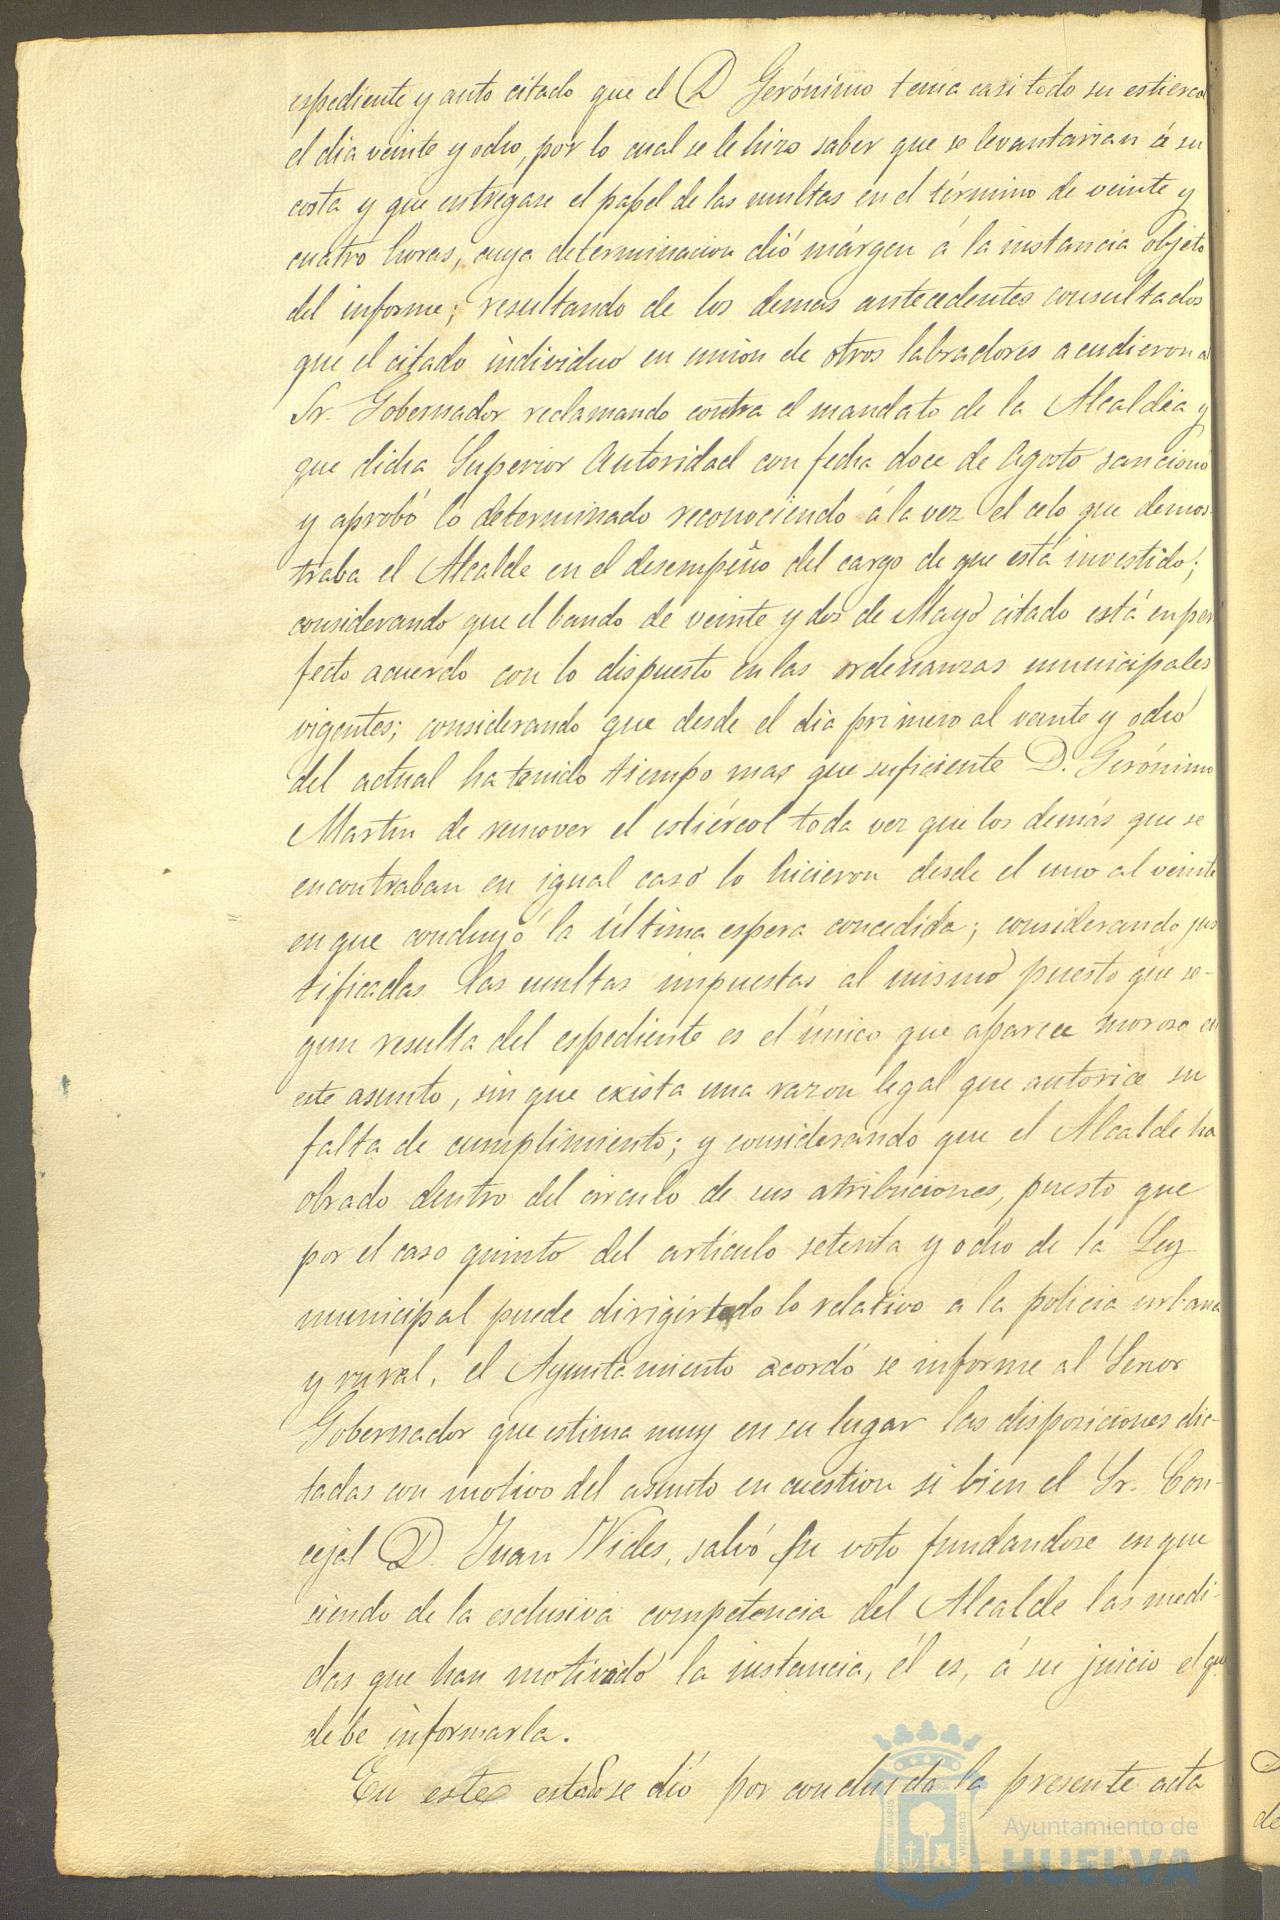 espediente y auto citado que el D Gerónimo tenia casi todo su estiercol
el dia veinte y ocho, por lo cual se le hizo saber que se levantarian á su
costa y que entregase el papel de las multas en el término de veinte y
cuatro horas, cuya determinacion dió márgen á la instancia objeto
del informe; resultando de los demas antecedentes consultados
que el citado individuo en union de otros labradores acudieron al
Sr. Gobernador reclamando contra el mandato de la Alcaldia y
que dicha Superior Autoridad con fecha doce de Agosto sancionó
y aprobó lo determinado reconociendo á la vez el celo que demos-
traba el Alcalde en el desempeño del cargo de que está investido;
considerando que el bando de veinte y dos de Mayo citado está en per
fecto acuerdo con lo dispuesto en las ordenanzas municipales
vigentes; considerando que desde el dia primero al veinte y ocho
del actual ha tenido tiempo mas que suficiente D. Gerónimo
Martin de remover el estiércol toda vez que los demás que se
encontraban en igual caso lo hicieron desde el uno al veinte
en que concluyó la última espera concedida; considerando jus
tificadas las multas impuestas al mismo puesto que se-
gun resulta del espediente es el único que aparece moroso en
este asunto, sin que exista una razon legal que autorice su
falta de cumplimiento; y considerando que el Alcalde ha
obrado dentro del circulo de sus atribuciones, puesto que
por el caso quinto del articulo setenta y ocho de la Ley
municipal puede dirigir todo lo relativo á la policia urbana
y rural, el Ayuntamiento acordó se informe al Señor
Gobernador que estima muy en su lugar las disposiciones dic-
tadas con motivo del asunto en cuestion si bien el Sr. Con-
cejal D. Juan Vides, salvó su voto fundandose en que
siendo de la esclusiva competencia del Alcalde las medi-
das que han motivado la instancia, él es, á su juicio el que
debe informarla.
En este estado se dió por concluida la presente acta
Ayuntamiento de
HUELVA